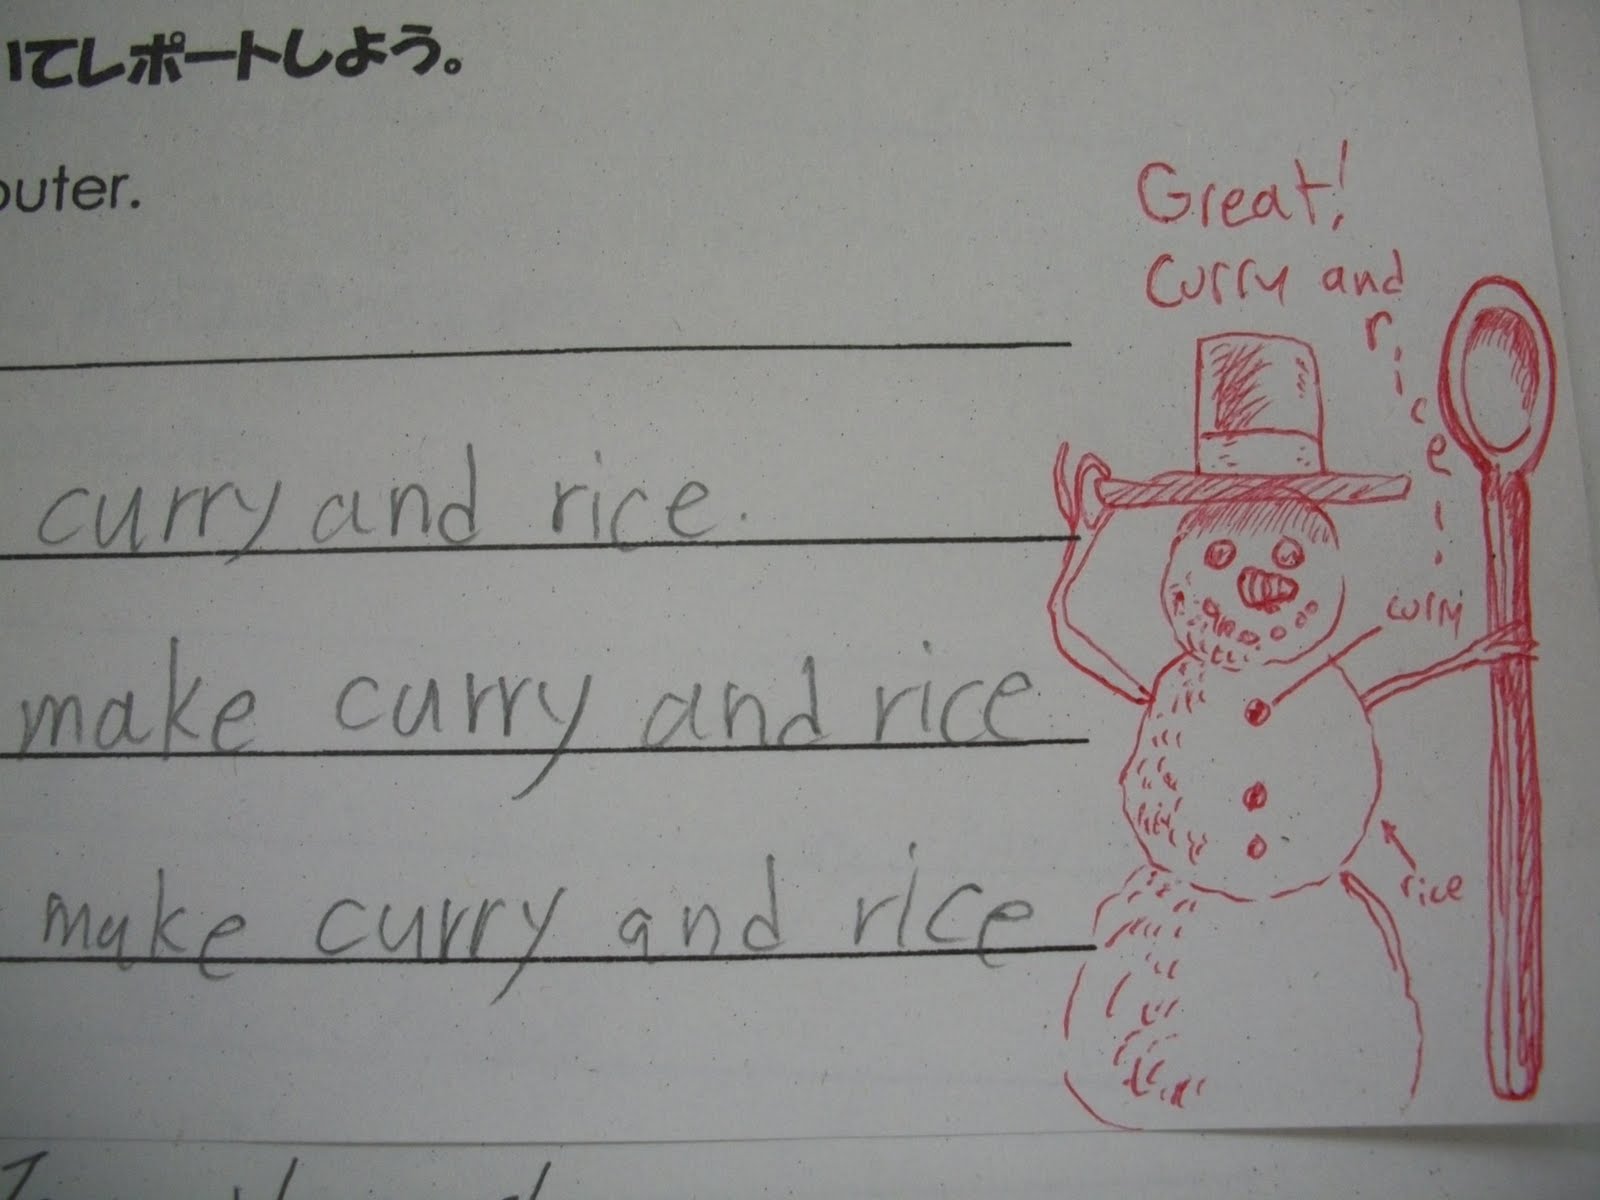 いてレポートしよう。
puter.
Great!
curry and
rice
curry and rice.
curry
make curry and rice
rice
make curry and rice